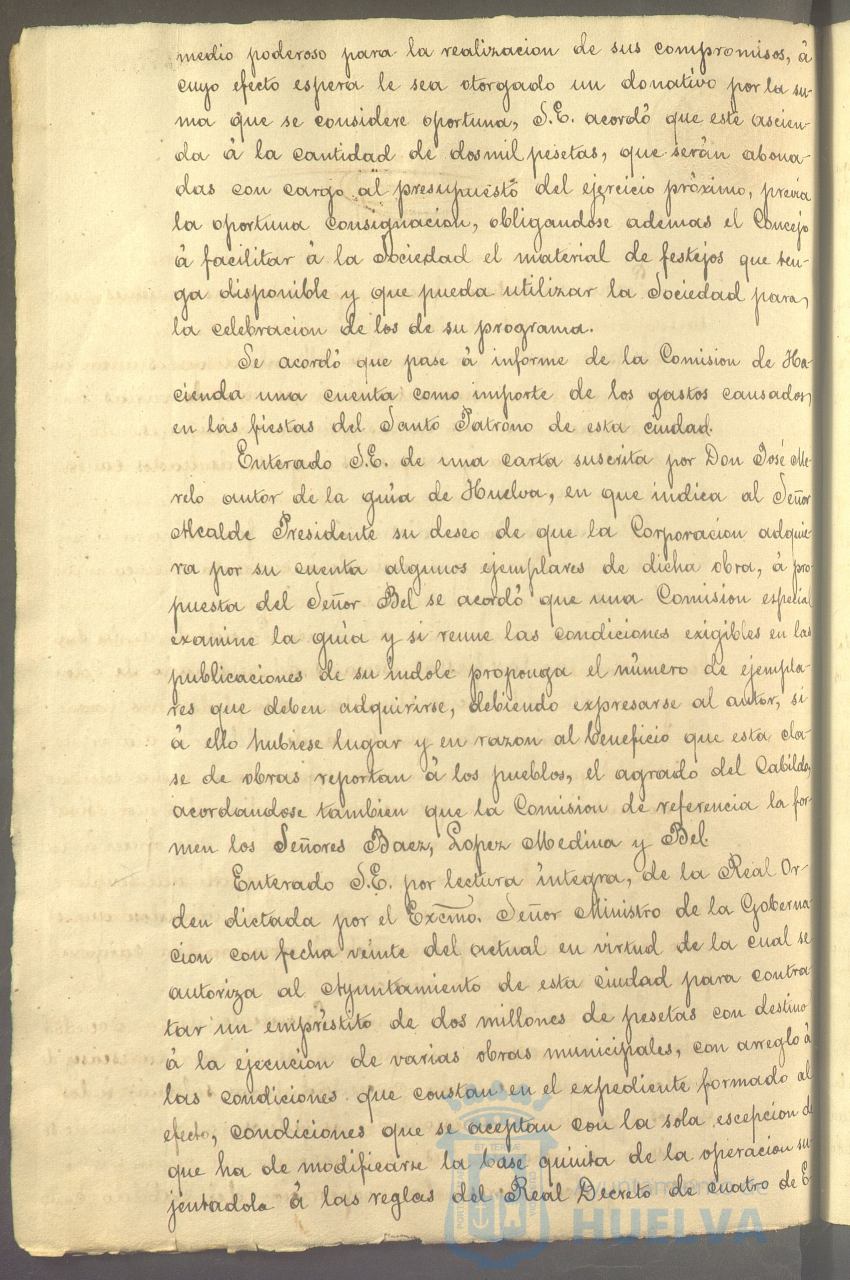 medio poderoso para la realizacion de sus compromisos, á
cuyo efecto espera le sea otorgado un donativo por la su-
ma que se considere oportuna, S.E. acordó que este ascien-
da á la cantidad de dosmil pesetas, que serán abona-
das con cargo al presupuesto del ejercicio próximo, previa
la oportuna consignacion, obligandose ademas el Concejo
á facilitar á la Sociedad el material de festejos que ten-
ga disponible y que pueda utilizar la Sociedad para,
la celebracion de los de su programa.
Se acordó que pase á informe de la Comision de Ha-
cienda una cuenta como importe de los gastos causados,
en las fiestas del Santo Patrono de esta ciudad.
Enterado S.E. de una carta suscrita por Don José Me-
relo autor de la guia de Huelva, en que indica al Señor
Alcalde Presidente su deseo de que la Corporacion adquie-
ra por su cuenta algunos ejemplares de dicha obra, á pro-
puesta del Señor Bel se acordó que una Comision especial
examine la guia y si reune las condiciones exigibles en las
publicaciones de su indole proponga el número de ejempla-
res que deben adquirirse, debiendo expresarse al autor, si
á ello hubiese lugar y en razon al beneficio que esta cla-
se de obras reportan á los pueblos, el agrado del Cabildo,
acordandose tambien que la Comision de referencia la for-
men los Señores Baez, Lopez Medina y Bel.
Enterado S.E. por lectura integra, de la Real Or-
den dictada por el Excmo. Señor Ministro de la Goberna-
cion con fecha veinte del actual en virtud de la cual se
autoriza al Ayuntamiento de esta ciudad para contra-
tar un empréstito de dos millones de pesetas con destino
á la ejecucion de varias obras municipales, con arreglo á
las condiciones que constan en el expediente formado al
efecto, condiciones que se aceptan con la sola escepcion de
que ha de modificarse la base quinta de la operacion su-
jentadola á las reglas del Real Decreto de cuatro de E-
Ayuntamiento de
HUELVA